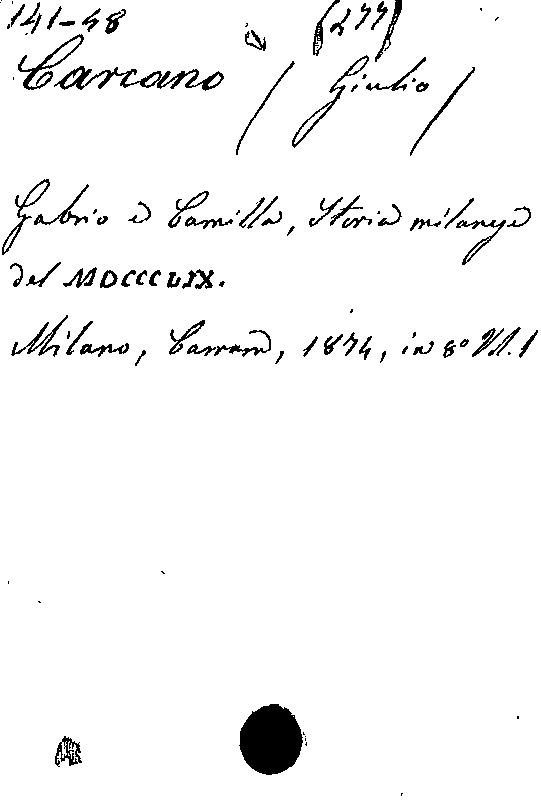 141-48 (277)
Carcano (Giulio)
Gabrio e Camilla, Storia milanese
del MDCCCLIX.
Milano, Carrara, 1874, in 8º Vol. 1